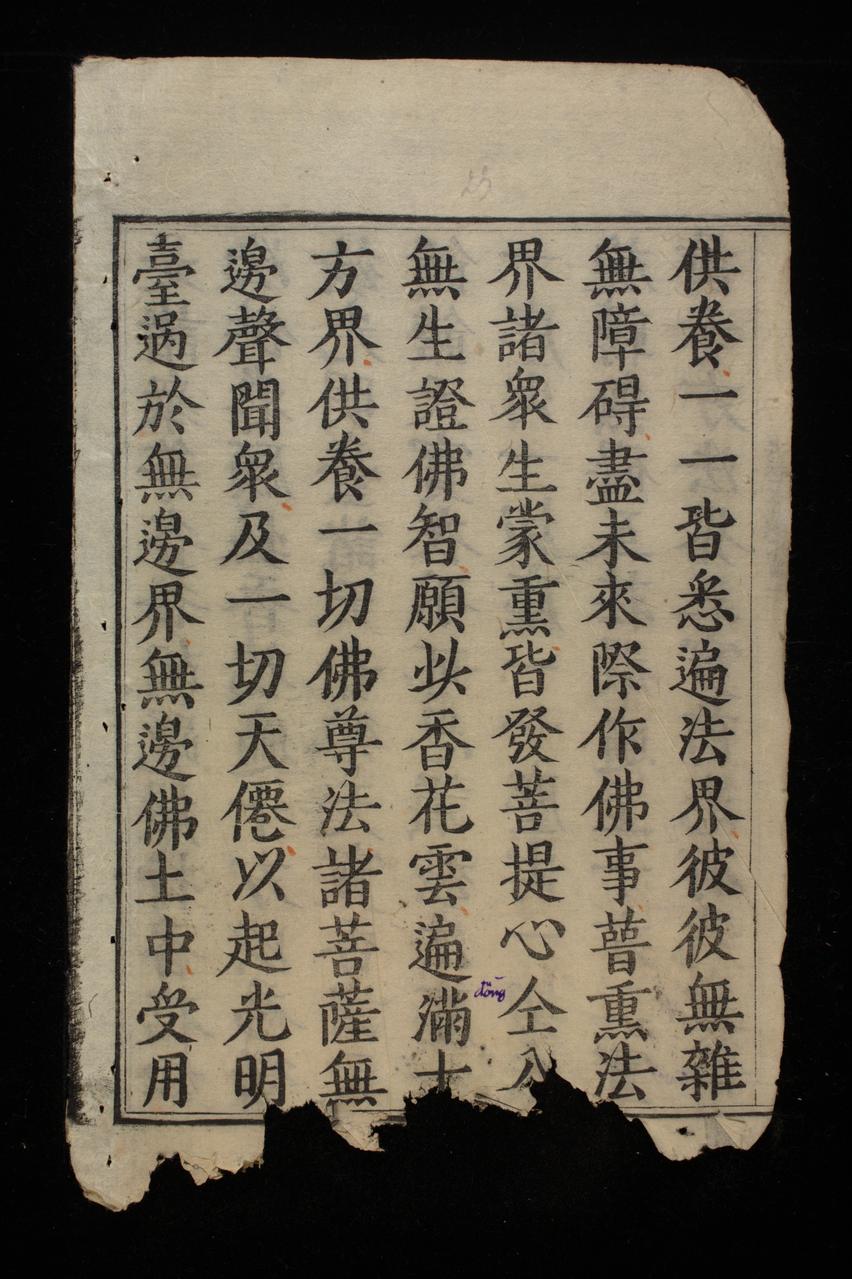 供養一一皆悉遍法界彼彼無雜
無障碍盡未來際作佛事普熏法
界諸衆生蒙熏皆發菩提心仝入
đồng
無生證佛智願此香花雲遍滿十
方界供養一切佛尊法諸菩薩無
邊聲聞衆及一切天僊以起光明
臺過於無邊界無邊佛土中受用